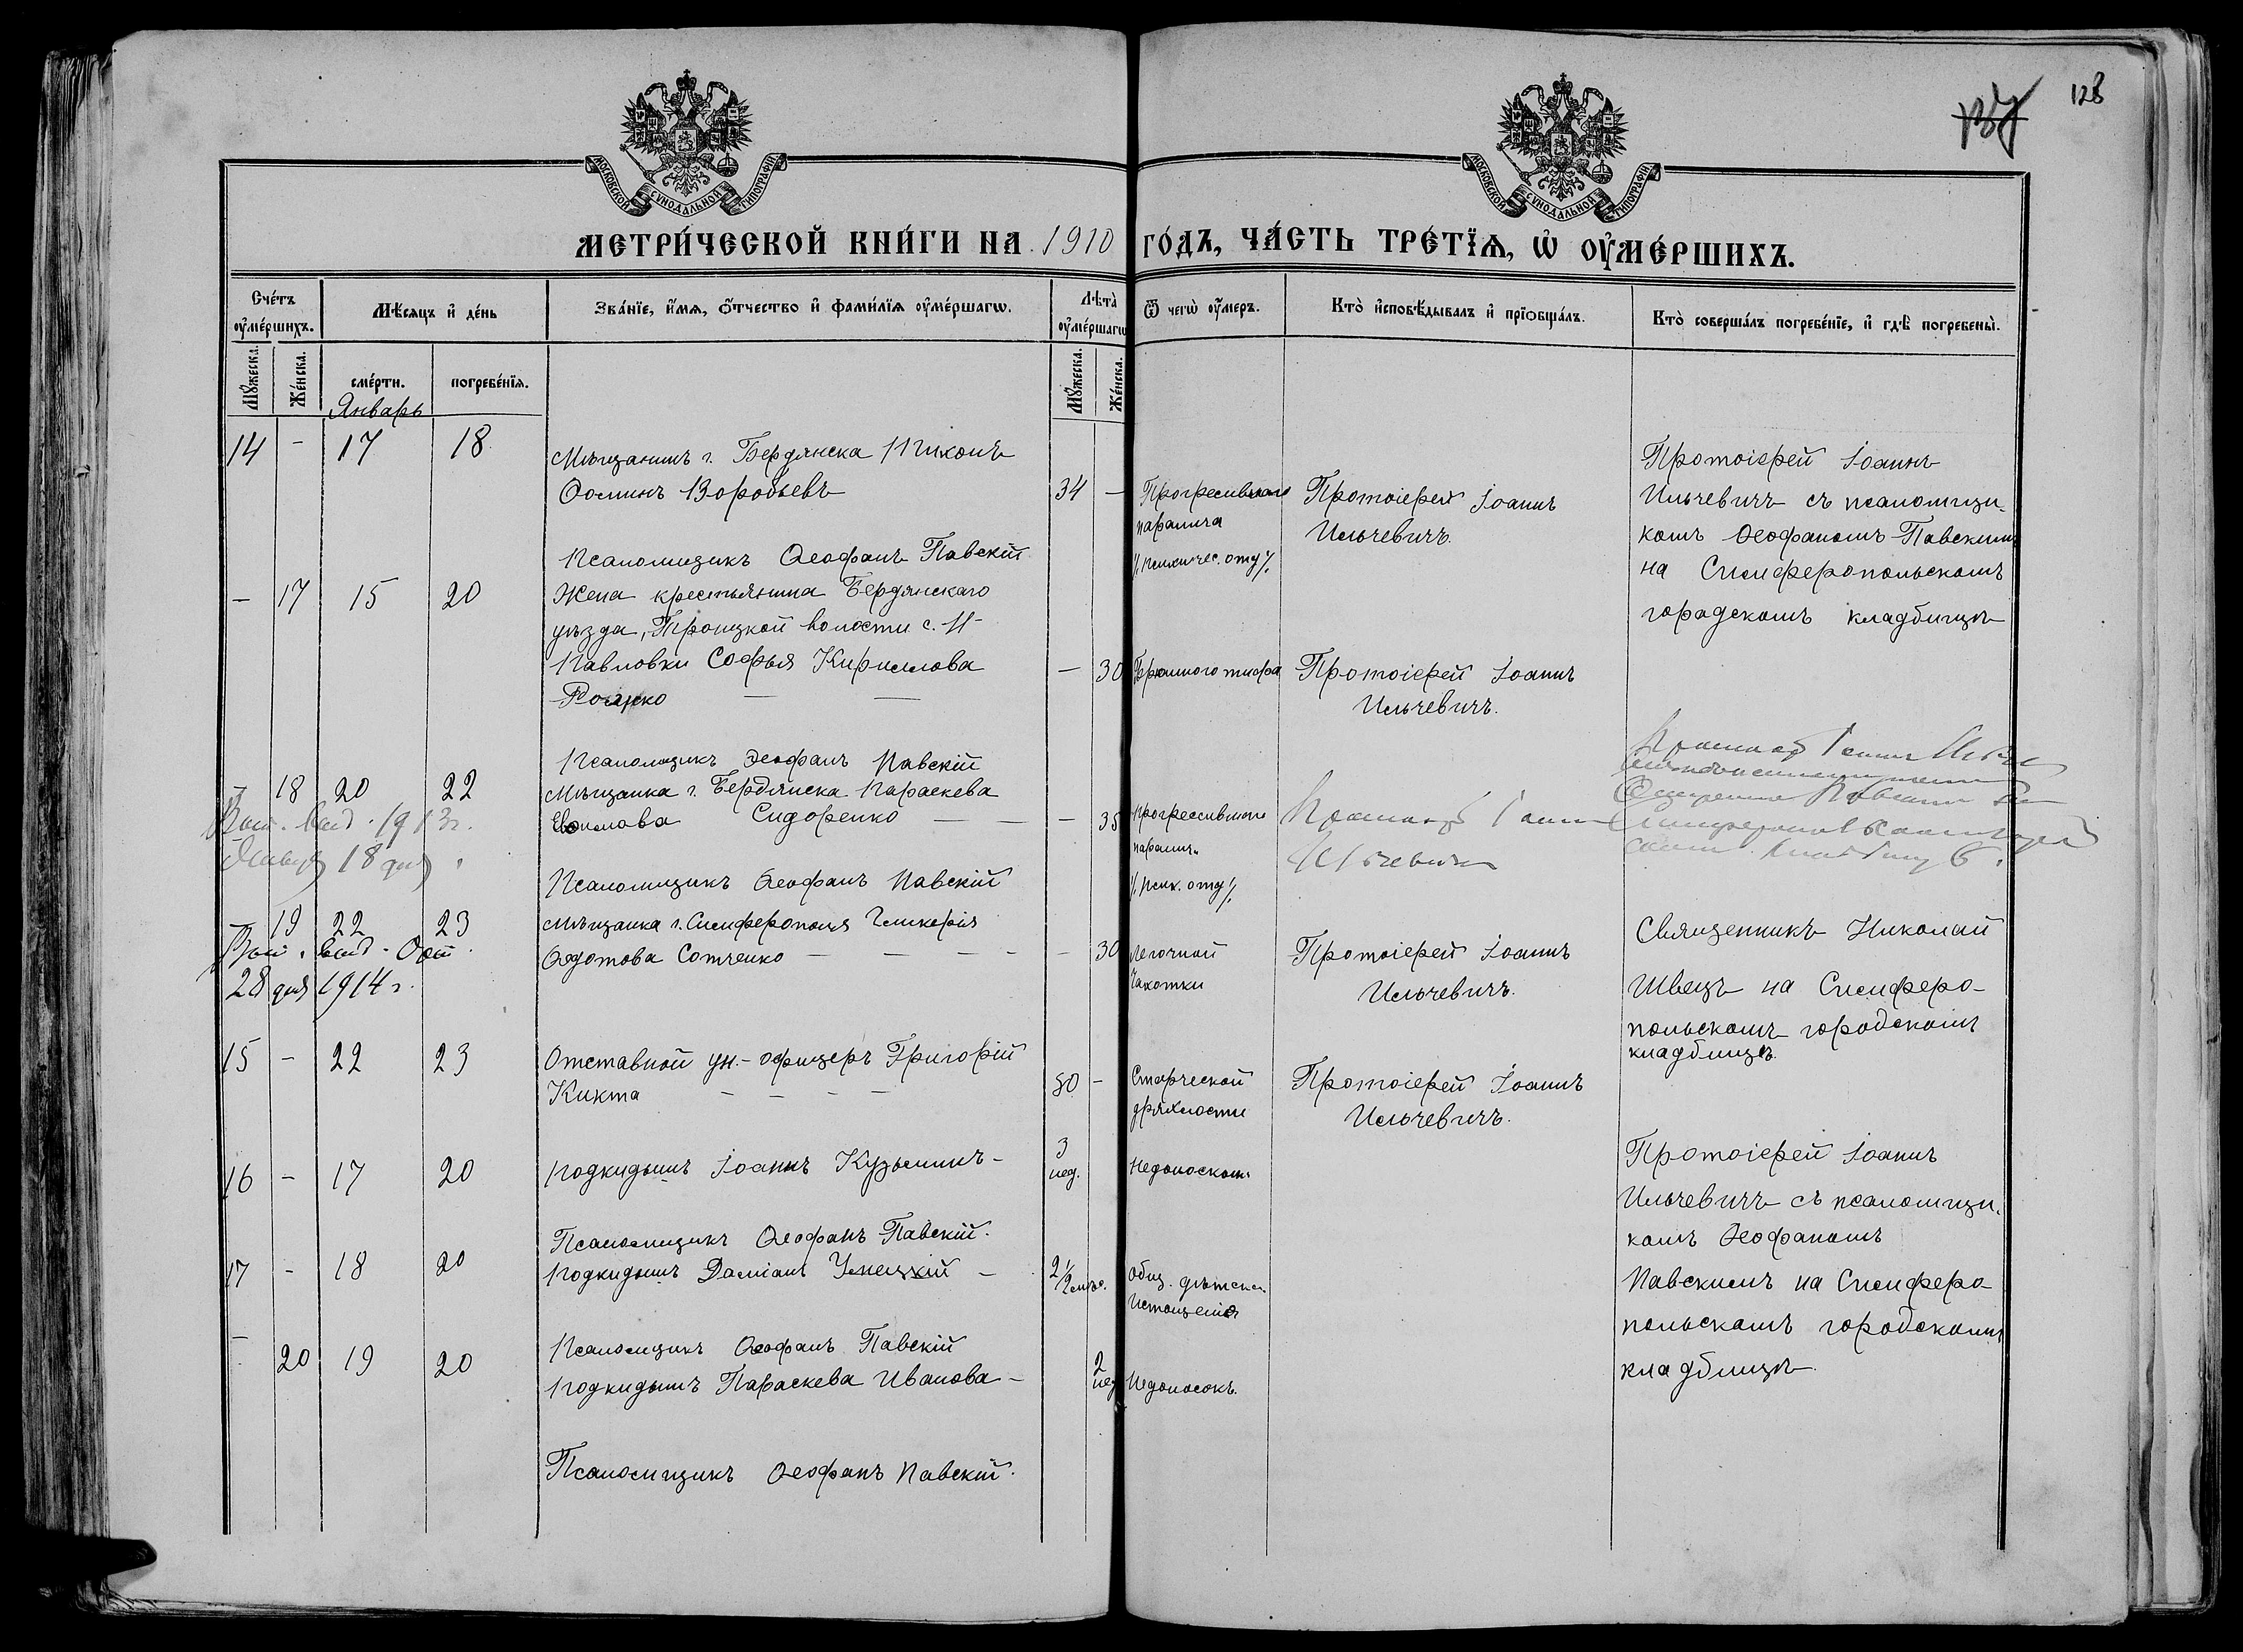 128
137
МОСКОВСКОЙ СѴНОДАЛЬНОЙ ТИПОГРАФІИ
МОСКОВСКОЙ СѴНОДАЛЬНОЙ ТИПОГРАФІИ
МЕТРИ́ЧЕСКОЙ КНИ́ГИ НА 1910 ГО́ДЪ, ЧА́СТЬ ТРЕ́ТЇѦ, Ѡ҆ ОУ҆МЕ́РШИХЪ.
Сче́тъ оу҆ме́ршихъ.
Мѣ́сяцъ и҆ де́нь
Зва́нїе, и҆́мѧ, ѻ҆́тчество и҆ фами́лїѧ оу҆ме́ршагѡ.
Лѣта̀ оу҆ме́ршагѡ
Ѿ чегѡ̀ оу҆́меръ.
Кто̀ и҆сповѣ́дывалъ и҆ прїѡбща́лъ.
Кто̀ соверша́лъ погребе́нїе, и҆ гдѣ̀ погребены̀.
Мꙋ́жеска.
Же́нска.
сме́рти.
погребе́нїѧ.
Мꙋ́жеска.
Же́нска.
Январь
14 - 17 18
Мѣщанинъ г. Бердянска Никонъ
Ѳоминъ Воробьевъ
34 -
Прогресивнаго
паралича
/психичес. отд/
Протоіерей Іоаннъ
Ильчевичъ.
Протоіерей Іоаннъ
Ильчевичъ съ псаломщи-
комъ Ѳеофаномъ Павскимъ
на Симферопольскомъ
городскомъ кладбищѣ
Псаломщикъ Ѳеофанъ Павскій
- 17 15 20
Жена крестьянина Бердянскаго
уѣзда, Троицкой волости с. Н-
Павловки Софья Кириллова
- 30
Брюшного тифа
Протоіерей Іоаннъ
Ильчевичъ.
Псаломщикъ Ѳеофанъ Павскій
- 18 20 22
Мѣщанка г. Бердянска Параскева
Сидоренко - - - 35
Прогрессивнаго
паралич.
/псих. отд/
Іоанн
Ильчевичъ
1913г.
18 дня
Псаломщикъ Ѳеофанъ Павскій
- 19 22 23
Мѣщанка г. Симферополя Гликерія
Ѳедотова Сотченко - - - - - 30
Легочной
чахотки
Протоіерей Іоаннъ
Ильчевичъ.
Священникъ Николай
Швецъ на Симферо-
польскомъ городскомъ
кладбищѣ.
28 дня 1914 г.
15 - 22 23
Отставной ун.-офицеръ Григорій
Кикта - - - -
80 -
Старческой
дряхлости
Протоіерей Іоаннъ
Ильчевичъ.
16 - 17 20
Подкидышъ Іоаннъ Кузьминъ -
3
нед.
Недоноскомъ
Протоіерей Іоаннъ
Ильчевичъ съ псаломщи-
комъ Ѳеофаномъ
Павскимъ на Симферо-
польскомъ городскомъ
кладбищѣ.
Псаломщикъ Ѳеофанъ Павскій.
17 - 18 20
Подкидышъ Даміанъ Умецкій -
2 1/2 мѣс.
Общ. дѣтск.
истощенія
Псаломщикъ Ѳеофанъ Павскій
- 20 19 20
Подкидышъ Параскева Иванова -
2
нед
Недоносокъ.
Псаломщикъ Ѳеофанъ Павскій.